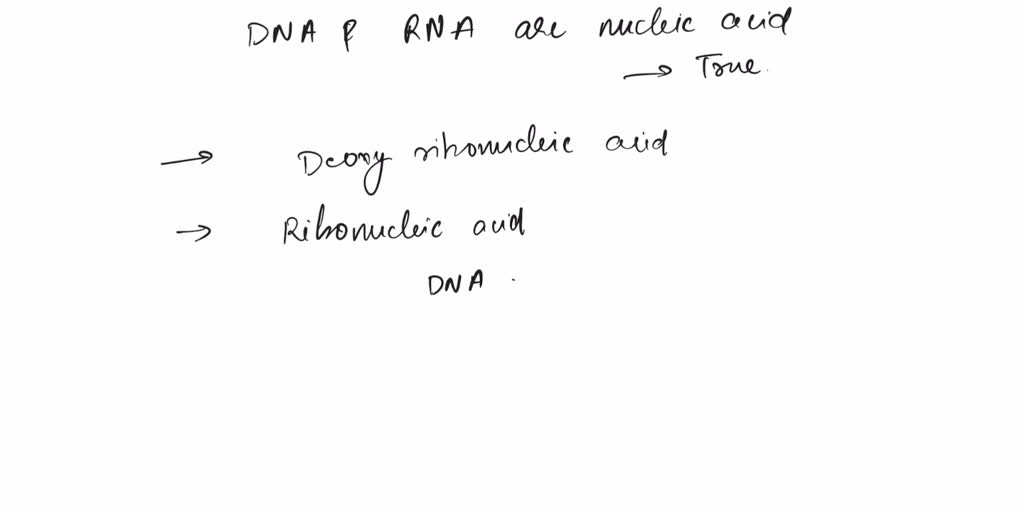 DNA & RNA are nucleic acid
→ True.
→ Deoxy ribonucleic acid
→ Ribonucleic acid
DNA .